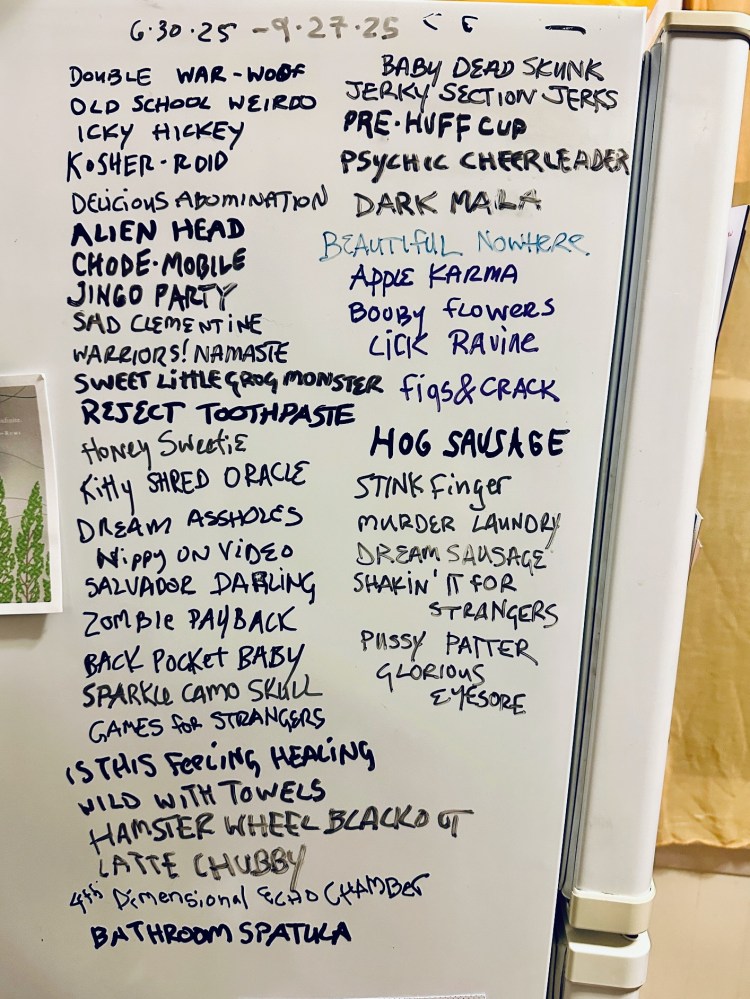 6·30·25 – 9·27·25
DOUBLE WAR-WOOF
OLD SCHOOL WEIRDO
ICKY HICKEY
KOSHER-ROID
DELICIOUS ABOMINATION
ALIEN HEAD
CHODE·MOBILE
JINGO PARTY
SAD CLEMENTINE
WARRIORS! NAMASTE
SWEET LITTLE GROG MONSTER
REJECT TOOTHPASTE
HONEY SWEETIE
Kitty SHRED ORACLE
DREAM ASSHOLES
Nippy ON VIDEO
SALVADOR DARLING
ZOMBIE PAYBACK
BACK POCKET BABY
SPARKLE CAMO SKULL
GAMES for STRANGERS
IS THIS FEELING HEALING
WILD WITH TOWELS
HAMSTER WHEEL BLACKOUT
LATTE CHUBBY
4th Dimensional ECHO CHAMBER
BATHROOM SPATULA
BABY DEAD SKUNK
JERKY SECTION JERKS
PRE·HUFF CUP
PSYCHIC CHEERLEADER
DARK MALA
BEAUTIFUL NOWHERE
APPLE KARMA
BOOBY FLOWERS
LICK RAVINE
FIGS & CRACK
HOG SAUSAGE
STINK Finger
MURDER LAUNDRY
DREAM SAUSAGE
SHAKIN' IT FOR
STRANGERS
PUSSY PATTER
GLORIOUS
EYESORE